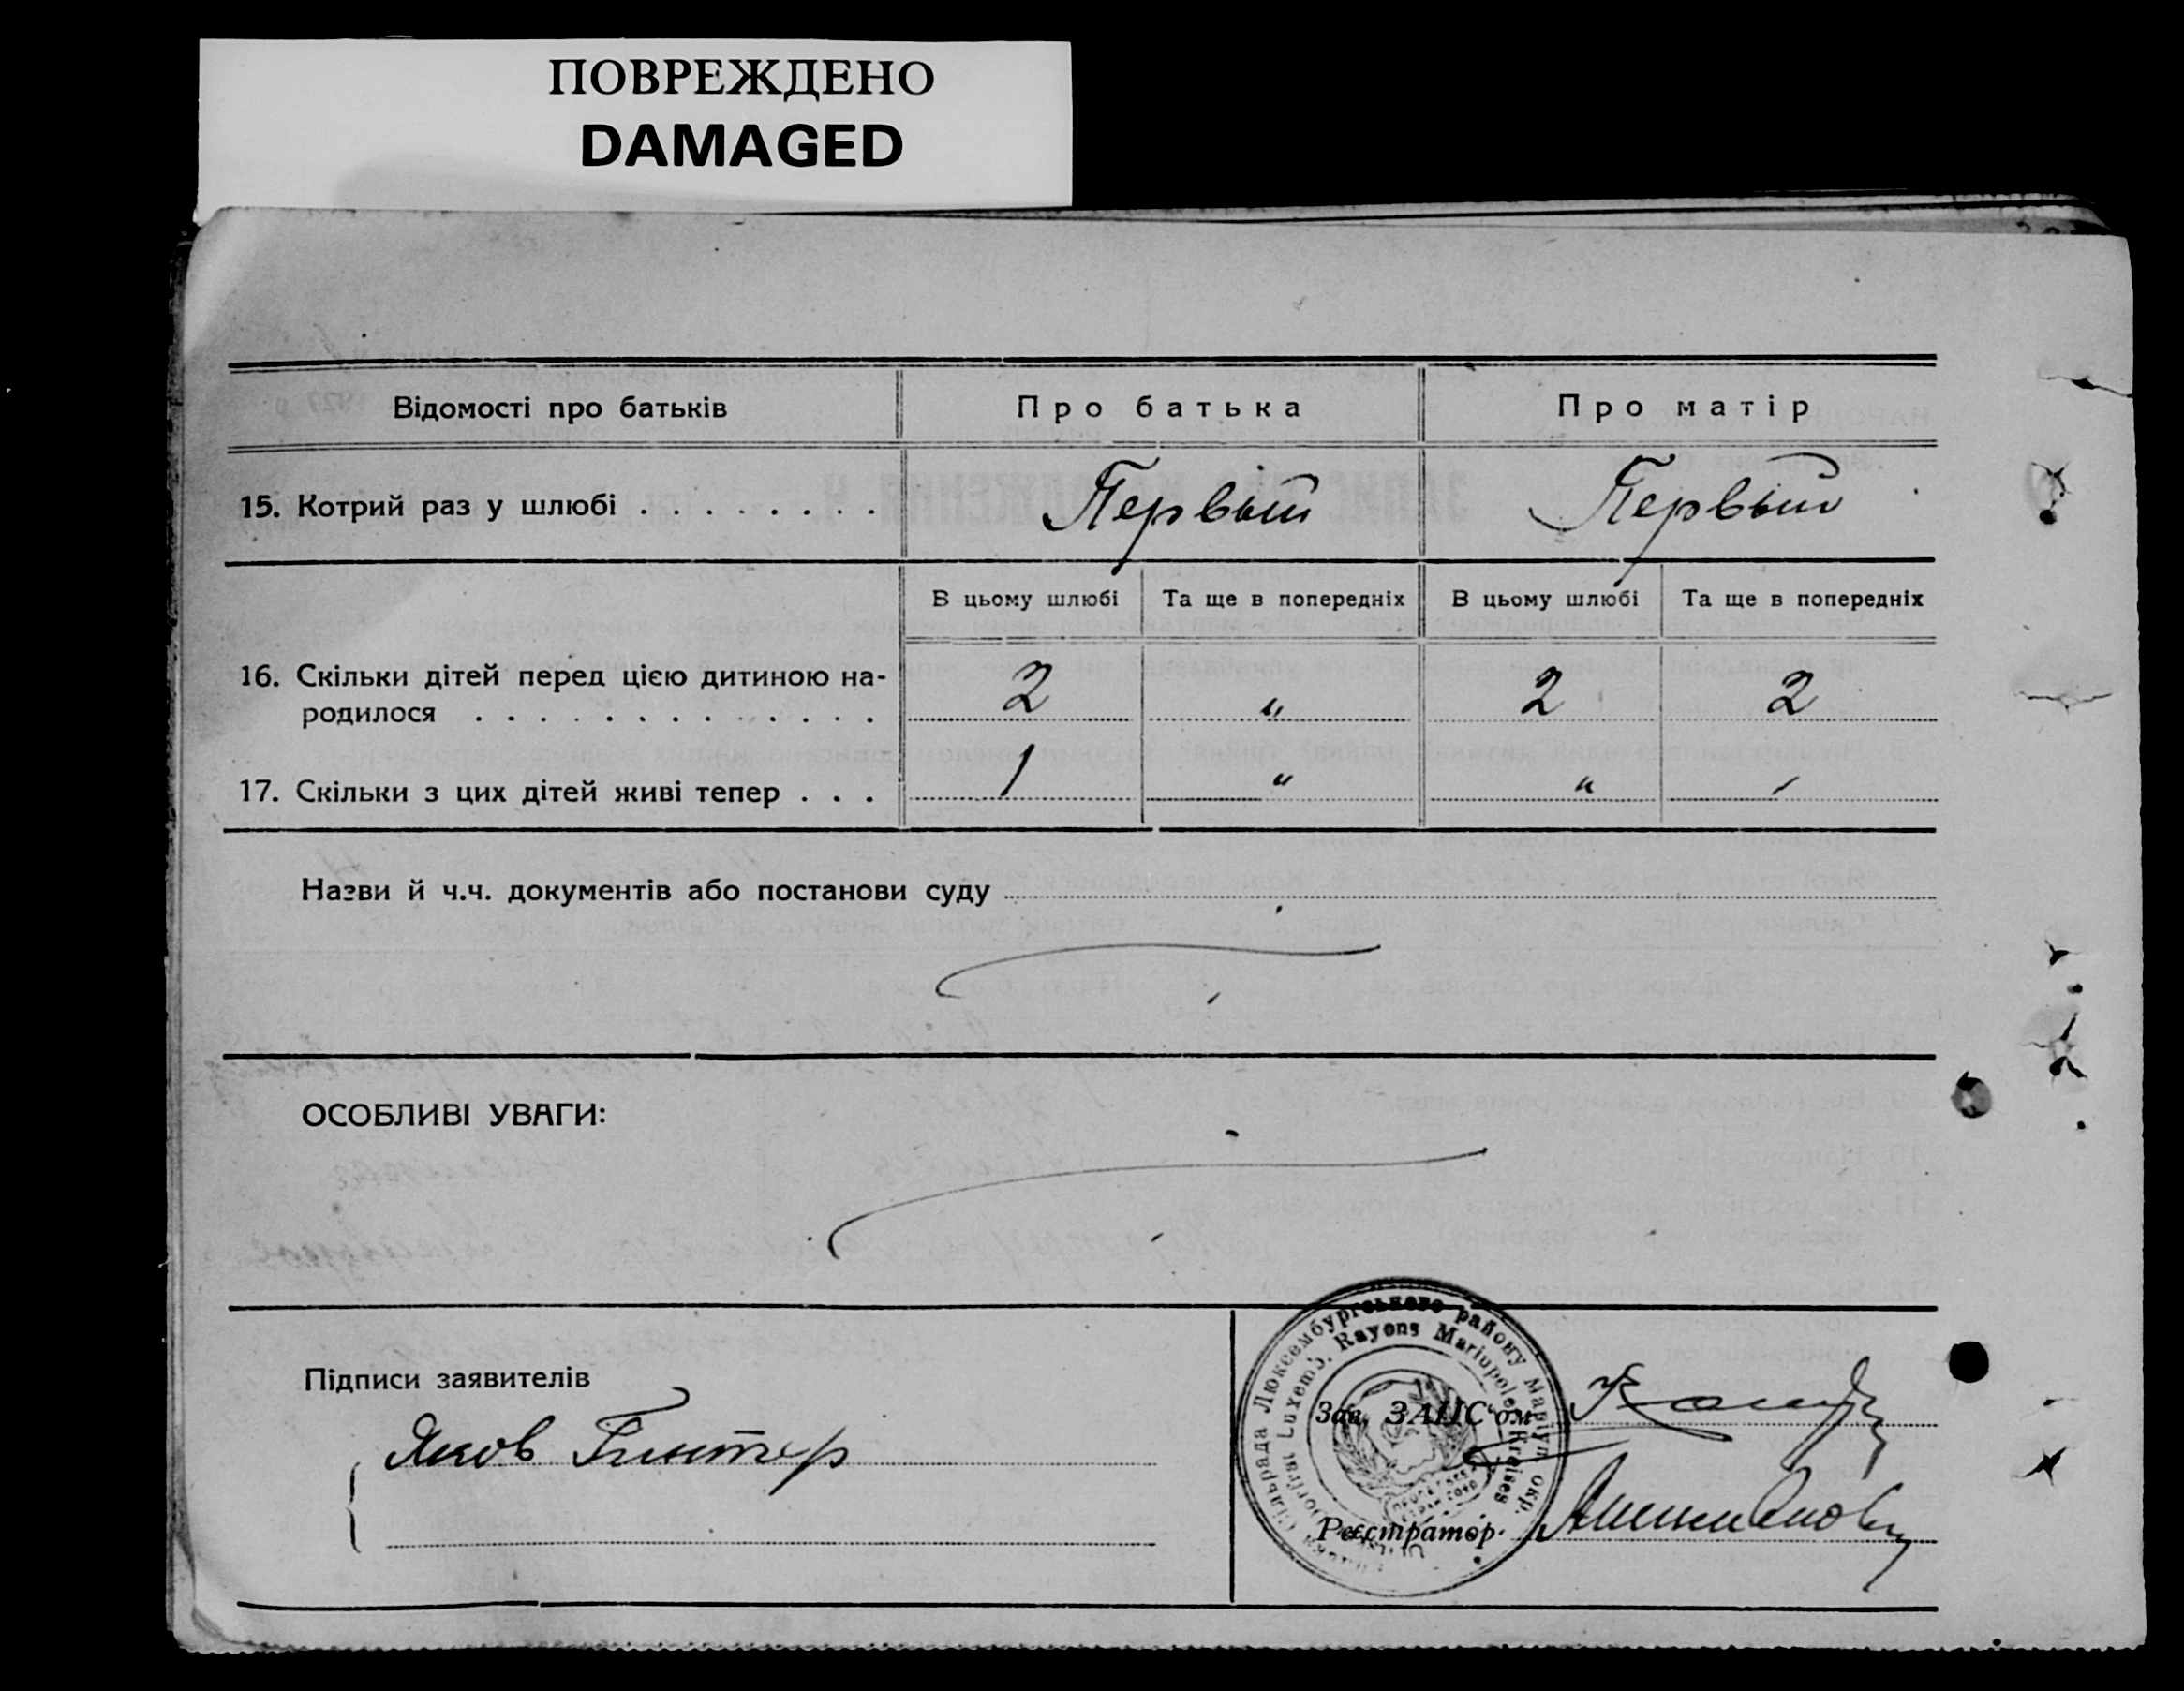 ПОВРЕЖДЕНО
DAMAGED
Відомості про батьків
Про батька
Про матір
15. Котрий раз у шлюбі . . . . . . . .
Первый
Первый
В цьому шлюбі
Та ще в попередніх
В цьому шлюбі
Та ще в попередніх
16. Скільки дітей перед цією дитиною на-
родилося . . . . . . . . . . . . .
2
"
2
2
17. Скільки з цих дітей живі тепер . . .
1
"
"
Назви й ч.ч. документів або постанови суду
ОСОБЛИВІ УВАГИ:
Підписи заявителів
Яков Гинтер
Сільрада Люксембургського району Маріуп. окр.
Dorfrat Luxemb. Rayons Mariupoler Kreises
Зав. ЗАПС'ом
Реєстратор